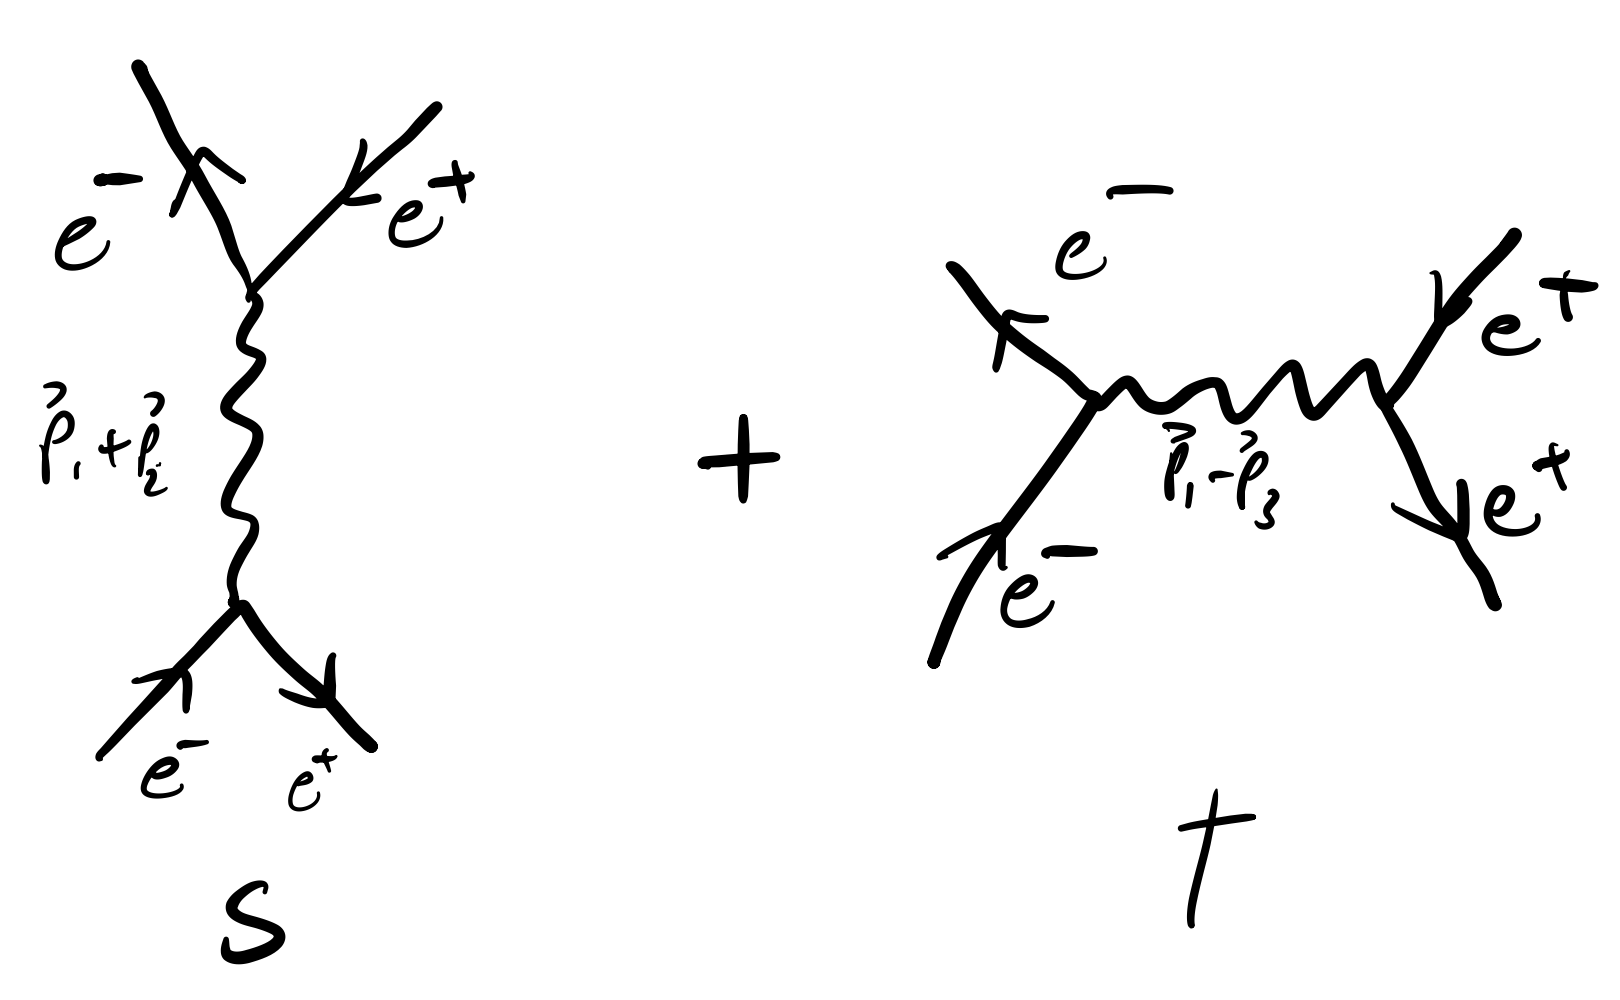 e⁻ e⁺
p⃗₁+p⃗₂
e⁻ e⁺
S
+
e⁻ e⁺
p⃗₁-p⃗₃
e⁻ e⁺
t